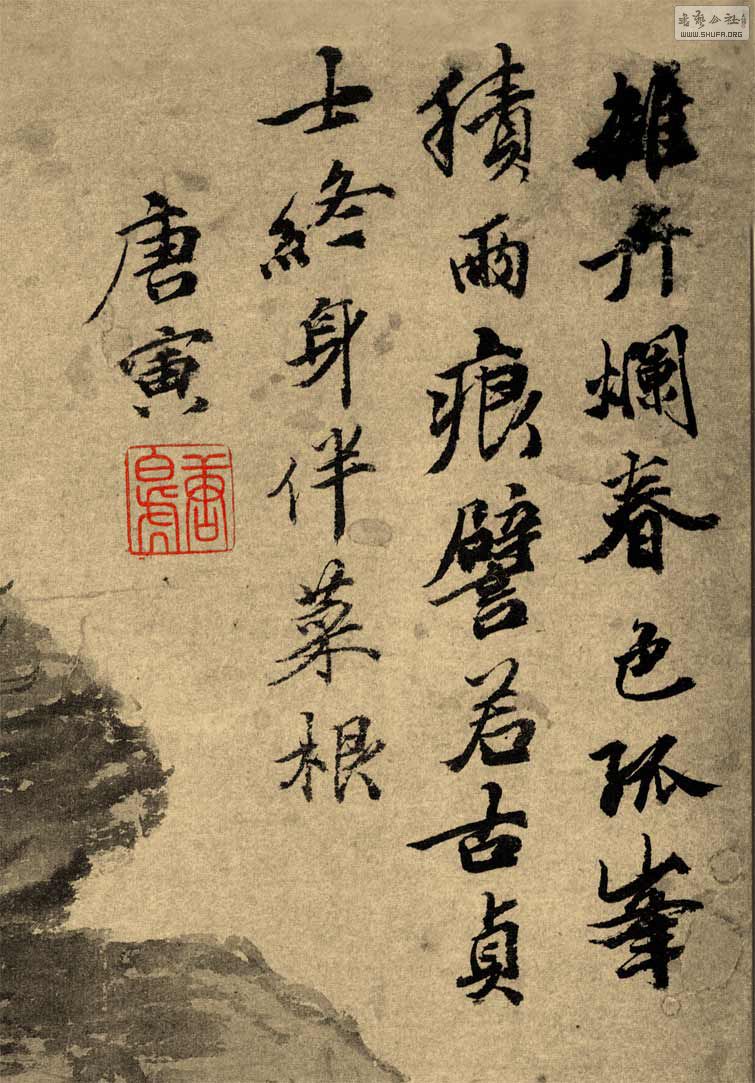 雜卉爛春色孤峯
積雨痕譬若古貞
士終身伴菜根
唐寅
唐白虎
書藝公社
WWW.SHUFA.ORG